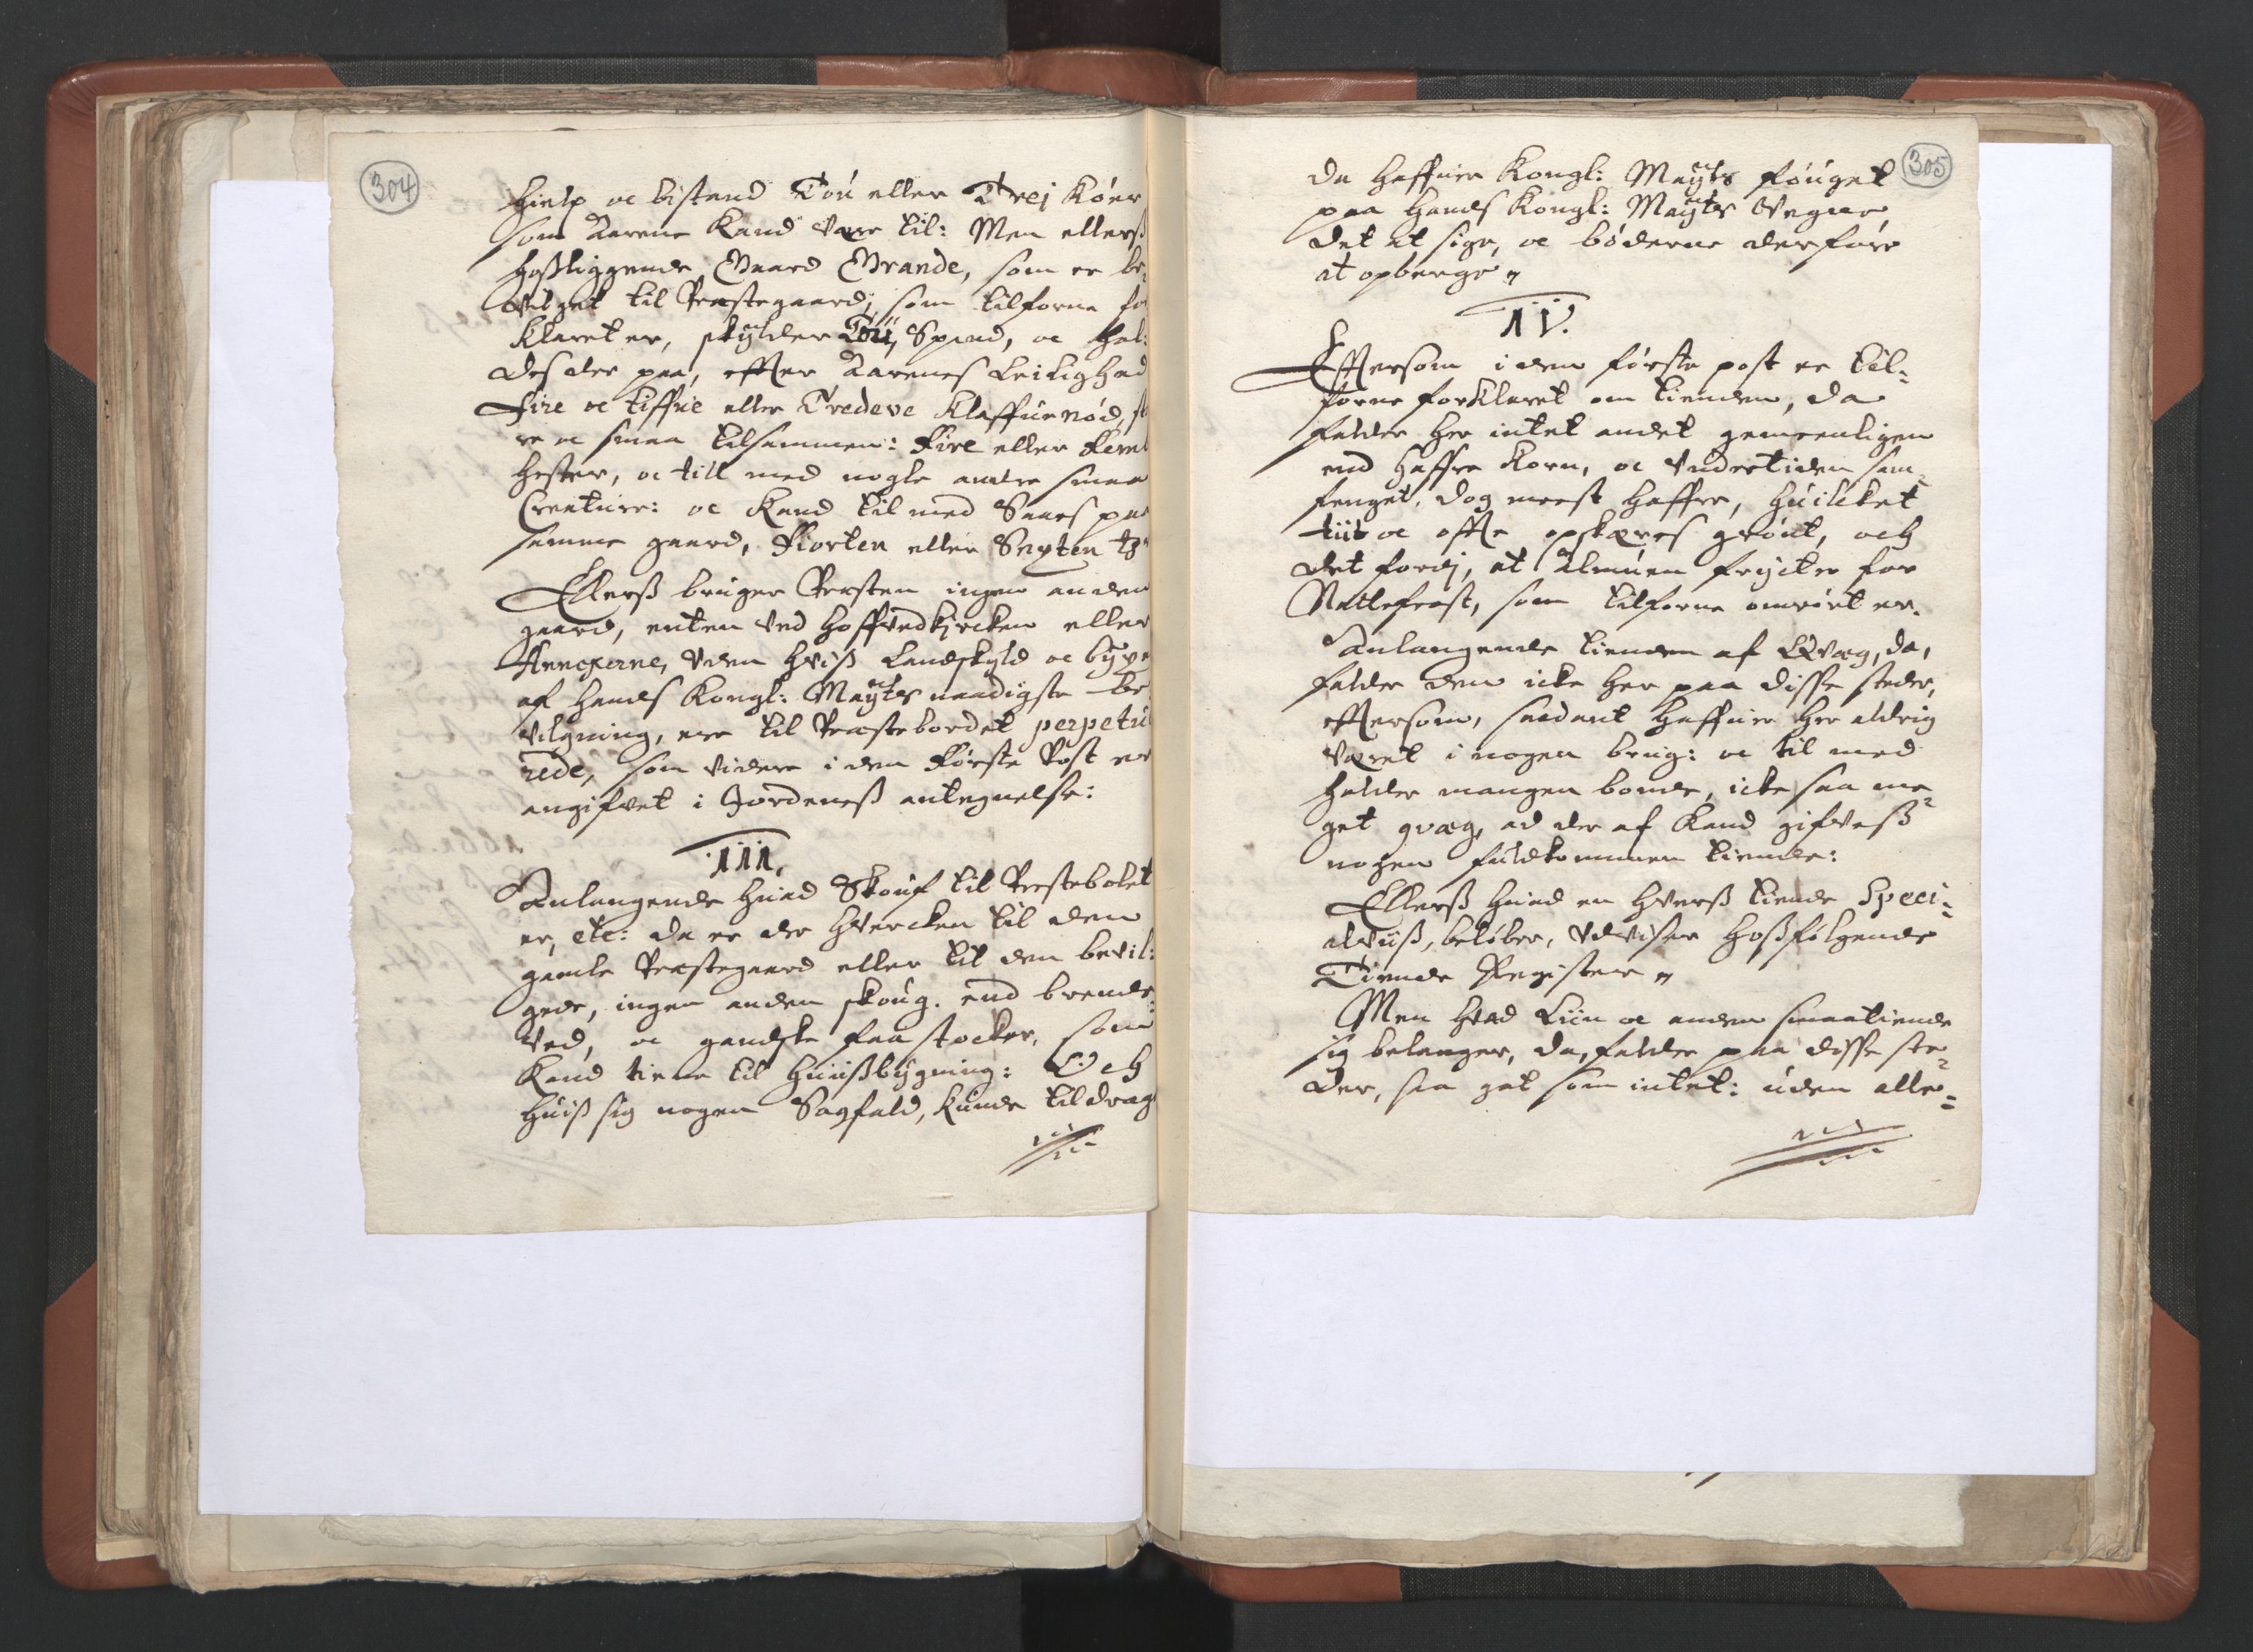 304
hielp oc bistand Tou eller Trej Køer
som Aarene Kand være til: Men ellerß
hoßliggende Gaard Grande, som er be:
vilget til Præstegaard, som tilforne for
klaret er, skÿlder Toü, Spand, oc hol:
des der paa, effter Aarenes Leilighed
Fire oc tiffue eller Tredeve Klaffuenød, sto
re oc smaa tilsammen: Fire eller Fem
hester, oc till med nogle andre smaa
Creature: oc Kand til med Saaes paa
samme gaard, Fiorten eller Sexten tr
Ellerß bruger Præsten ingen anden
gaard, enten ved hoffvedkircken eller
Annexerne, uden hviß Landskyld oc byxel
af hands Kongl: Maÿts naadigste be:
vilgning, ere til Præstebordet perpetue
rede, som videre i den Første Post er
angifvet i Jordeneß antegnelse:
III.
Anlangende huad Skouf til Præstebolet
er, etc: da er der hvercken til den
gamle Præstegaard eller til den bevil:
gede, ingen anden skoug. end brende:
ved, oc gandske faa stocker, som
Kand tiene til huußbygning: Och
huiß sig nogen Sagfald, kunde tildrag
305
da haffuer Kongl: Maÿts fouget
paa hands Kongl: Maÿts Vegne
det at sige, oc bøderne derfore
at opberge
IV.
Efftersom i den første post er til:
forne forklaret om tienden, da
falder her intet andet gemeenligen
end haffre Korn, oc undertiden sam:
fenget, dog meest haffre, huilcket
tiit oc offte opskæres grønt, och
det fordj, at Almuen frycter for
Nattefrost, som tilforne omrørt er.
Anlangende tienden af Qvæg, da,
falder den icke her paa disse steder,
efftersom, saadant haffuer her aldrig
været i nogen brug: oc til med
holder mangen bonde, icke saa me:
get qvæg, ad der af Kand gifveß
nogen fuldkommen tiende:
Ellerß huad en hverß tiende Speci:
alviiß, beløber, udviser hoßfølgende
Tiende Register
Men hvad Liin oc anden smaatiende
sig belanger, da, falder paa disse ste:
der, saa got som intet: uden alle: